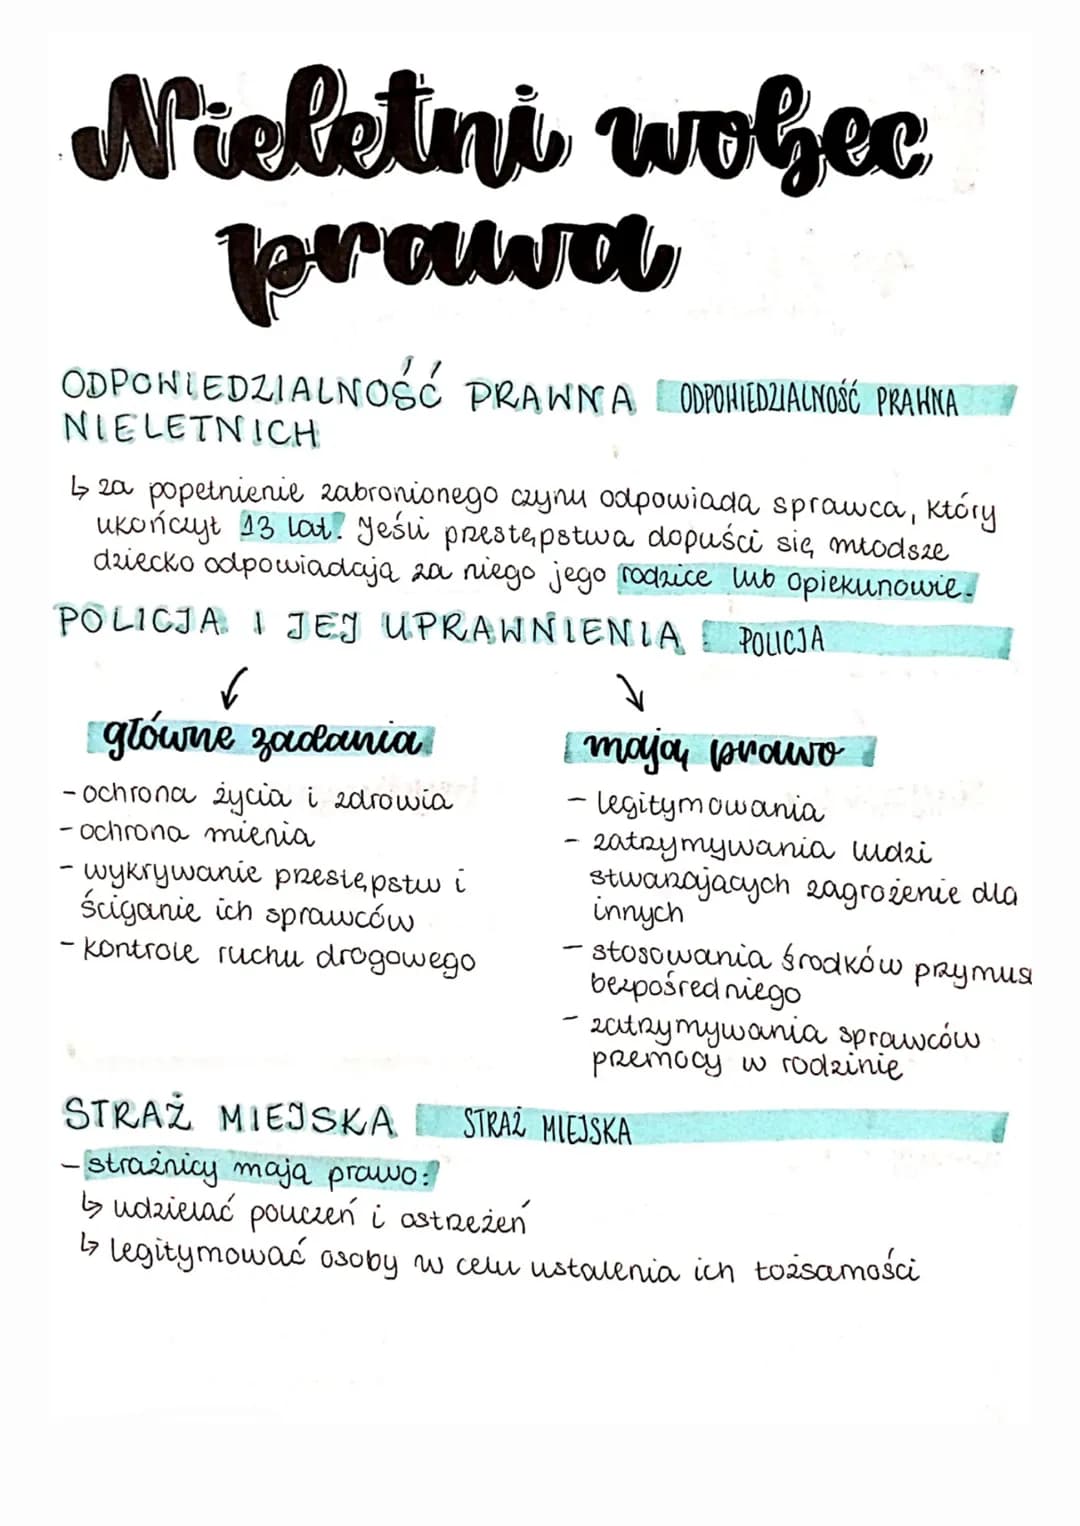 Nieletni wobec
prawa
ODPOWIEDZIALNOŚĆ PRAWNA ODPOWIEDZIALNOŚĆ PRAWNA
NIELETNICH
↳ za popełnienie zabronionego czynu odpowiada sprawca, który
ukończył 13 lat. Jeśli przestępstwa dopuści się młodsze
dziecko odpowiadają za niego jego rodzice lub opiekunowie.
POLICJA I JEJ UPRAWNIENIA POLICJA
główne zadania
- ochrona życia i zdrowia
- ochrona mienia
- wykrywanie przestępstw i
ściganie ich sprawców
- kontrole ruchu drogowego
mają prawo
- legitymowania
- zatrzymywania ludzi
stwarzających zagrożenie dla
innych
- stosowania środków przymusu
bezpośredniego
- zatrzymywania sprawców
przemocy w rodzinie
STRAŻ MIEJSKA STRAŻ MIEJSKA
- strażnicy mają prawo:
↳ udzielać pouczeń i ostrzeżeń
↳ legitymować osoby w celu ustalenia ich tożsamości